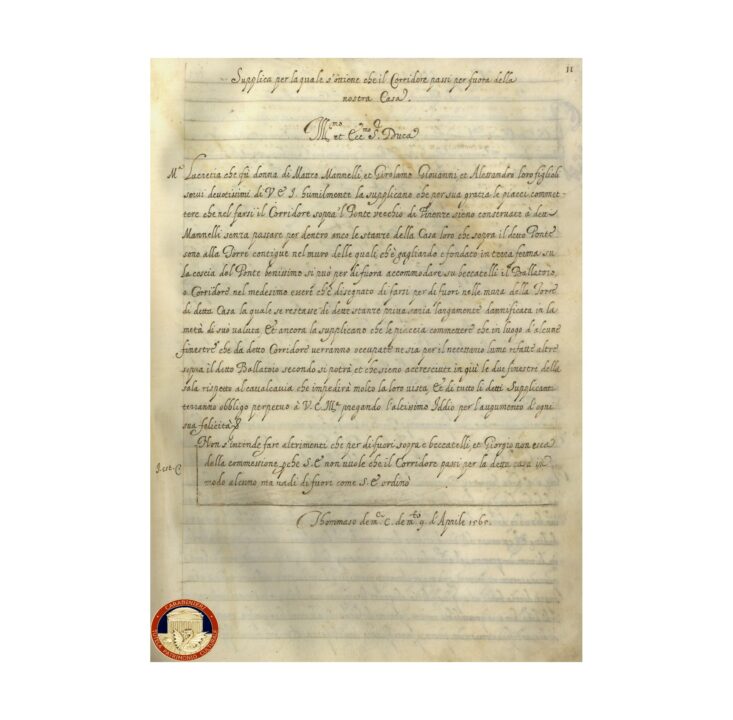 11
Supplica per la quale s'ottiene che il Corridore passi per fuora della
nostra Casa.
Ill.mo et Ecc.mo S. Duca
M.a Lucretia che fù donna di Matteo Mannelli, et Girolamo Giovanni, et Alessandro loro figlioli
servi devotissimi di V. E. I. humilmente la supplicano che per sua gratia le piacci commet-
tere che nel farsi il Corridore sopra 'l Ponte vecchio di Firenze sieno conservate à detti
Mannelli senza passare per dentro anco le stanze della Casa loro che sopra il detto Ponte
sono alla Torre contigue nel muro delle quali, ch'è gagliardo e fondato in terra ferma su
la coscia del Ponte benissimo si può per di fuora accommodare su beccatelli il Ballatoio
o Corridore nel medesimo essere ch'è disegnato di farsi per di fuori nelle mura della Torre
di detta Casa la quale se restasse di dette stanze priva saria largamente dannificata in la
metà di suo valuta, Et ancora la supplicano che le piaccia commettere che in luogo d'alcune
finestre che da detto Corridore verranno occupate ne sia per il necessario lume rifatte altre
sopra il detto Ballatoio secondo si potrà et che sieno accresciute in giù le due finestre della
sala rispetto al cavalcavia che impedirà molto la loro vista, Et di tutto li detti Supplicanti
terranno obbligo perpetuo à V. E. Ill. pregando l'altissimo Iddio per l'augumento d'ogni
sua felicità
Non s'intende fare altrimenti che per di fuori sopra e beccatelli, et Giorgio non esca
della commessione, perche S. E. non vuole che il Corridore passi per la detta casa in
modo alcuno ma vadi di fuori come S. E. ordinò
Thommaso de m.ci C. de m.to 9. d'Aprile 1565.
CARABINIERI
TUTELA PATRIMONIO CULTURALE